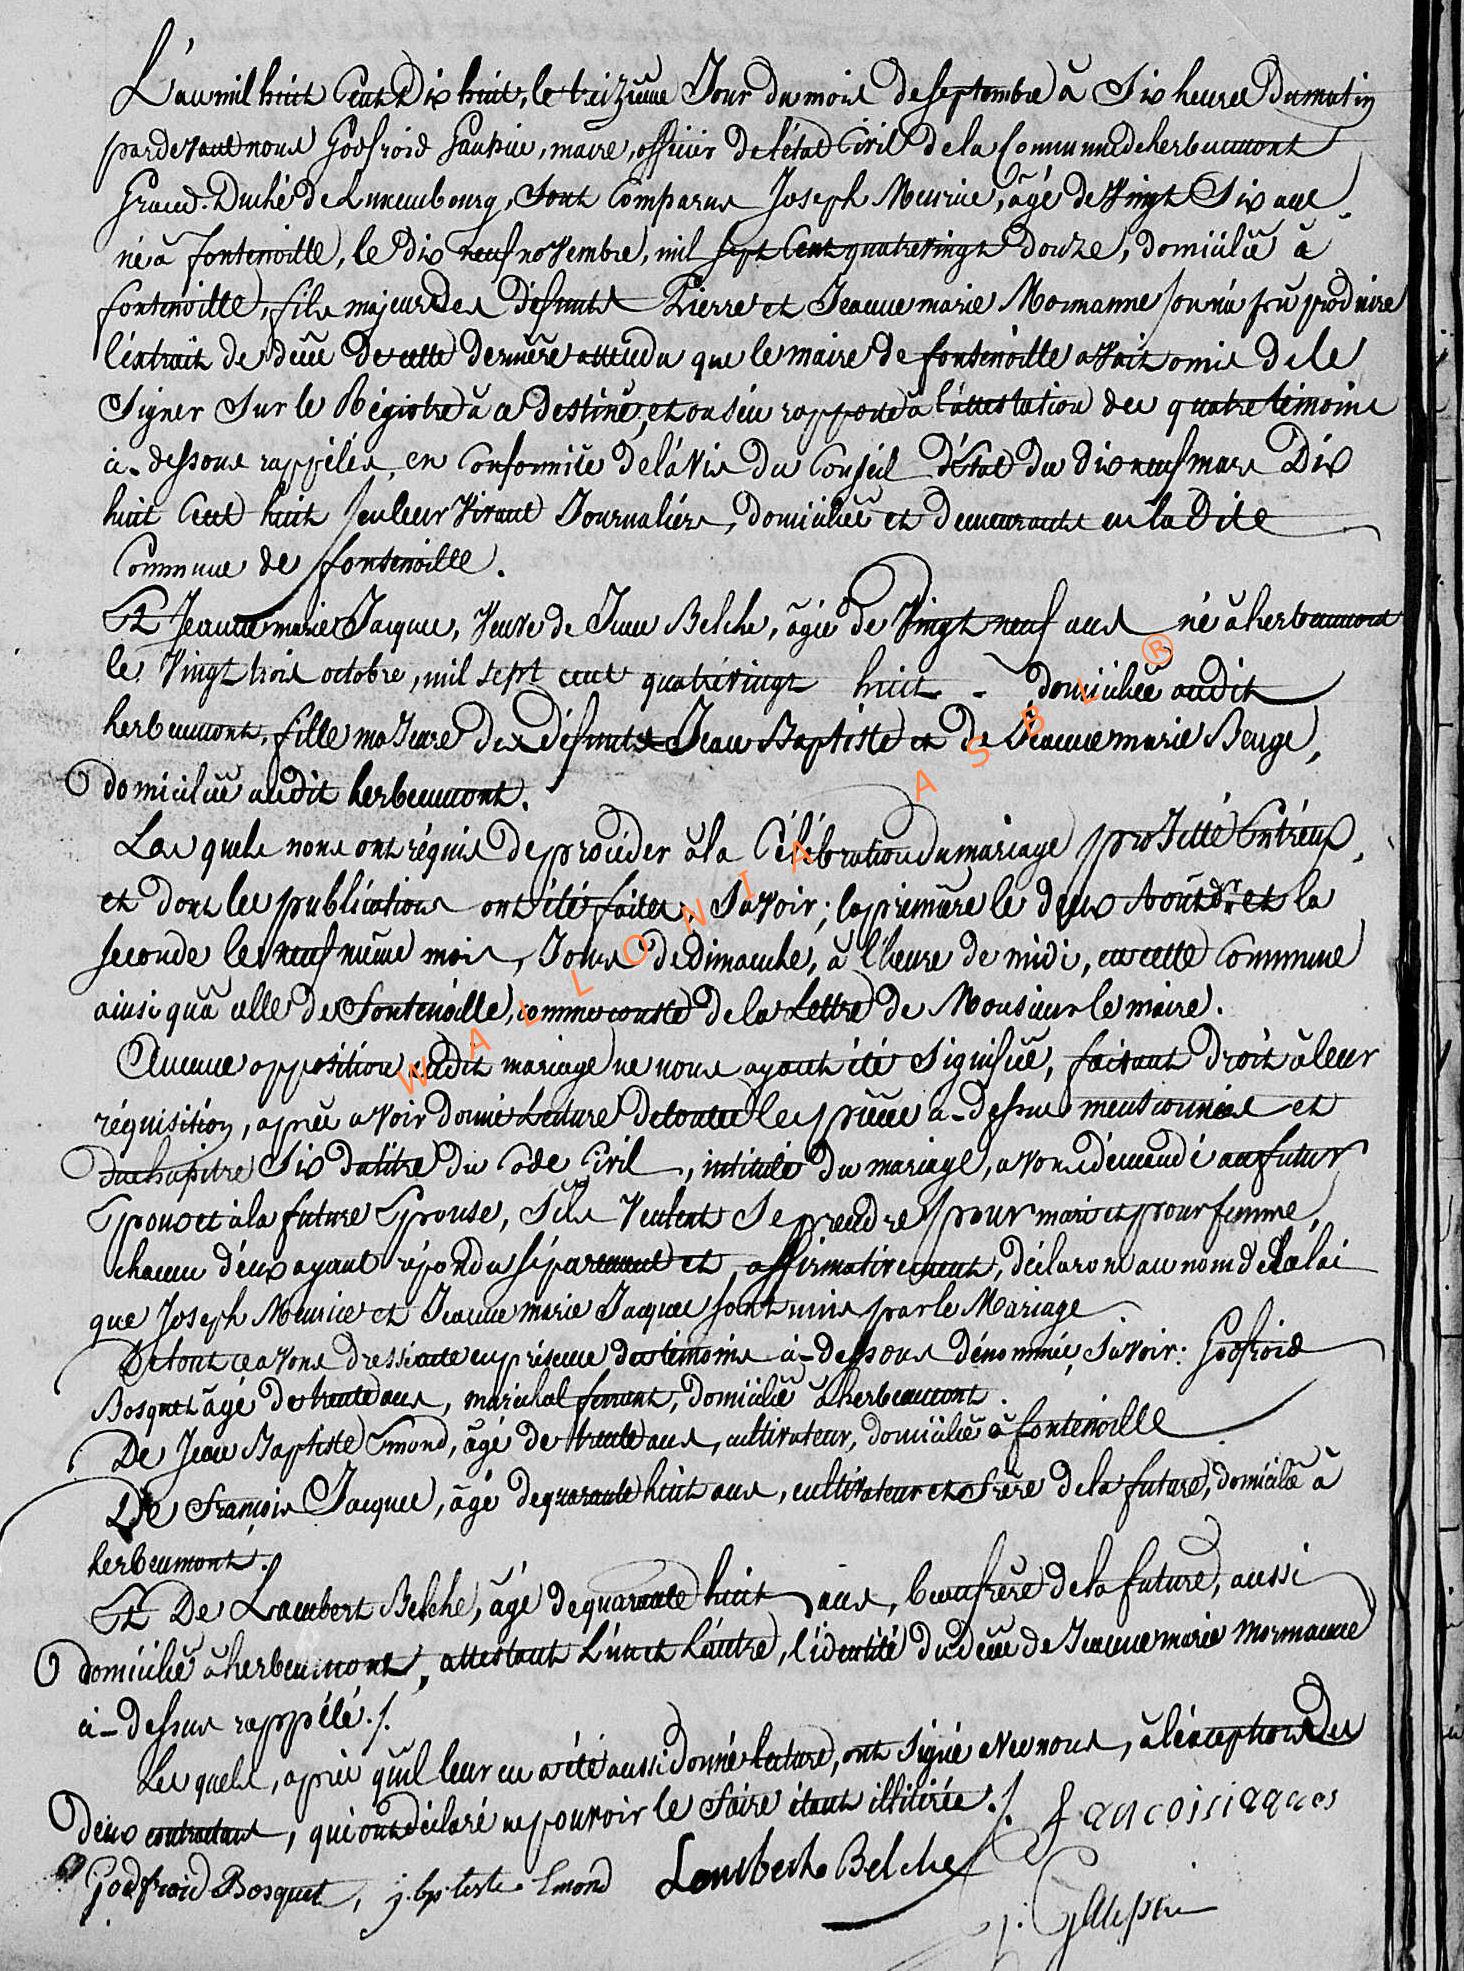 L'an mil huit Cent Dix huit, le treizieme Jour du mois de septembre à Six heures Du matin
pardevant nous Godfroid maire, officier de l'état Civil de la Commune de herbeumont
Grand-Duché de Luxembourg, Sont Comparus Joseph Meurice, âgé de Vingt Six ans
né à fontenoille, le dix neuf novembre, mil sept Cent quatre vingt douze, domicilié à
fontenoille, fils majeur des défunts Pierre et Jeanne marie Mormanne
l'éxtrait de décé de cette derniére attendu que le maire de fontenoille avait omis de le
Signer Sur le Régistre à ce destiné, et on s'en rapporte à l'attestation des quatre témoins
ci-dessous rappélés, en Conformité de l'avis du Conseil d'état du dix neuf mars Dix
huit Cent huit en leur vivant Journaliers, domiciliés et demeurants en la dite
Commune de fontenoille.
Et Jeanne marie Jacques, Veuve de Jean Belche, âgée de Vingt neuf ans né à herbeumont
le Vingt trois octobre, mil sept cent quatrévingt huit - domiciliée audit
herbeumont, fille majeure des défunts Jean Baptiste et de Jeanne marie Beuge,
domiciliée audit herbeumont.
Les quels nous ont réquis de procéder à la Célébration du mariage projetté Entréux,
et dont les publications ont été faites, Savoir; la premiere le deux et la
seconde le neuf même mois, Jours de Dimanche, à l'heure de midi, en cette Commune
ainsi qu'à celle de fontenoille, comme conste de la Lettre de Monsieur le maire.
Aucune opposition audit mariage ne nous ayant été Signifiée, faisant droit à leur
réquisition, après avoir donné Lecture de toutes les piéces ci-dessus mentionnées et
du chapitre Six du titre du Code Civil, intitulé du mariage, avons démandé au futur
Epoux et à la future Epouse, S'ils Veulent Se prendre pour mari et pour femme,
chacun d'éux ayant répondu séparement et affirmativement, déclarons au nom de la loi
que Joseph Meurice et Jeanne marie Jacques sont unis par le Mariage
De tout ce avons dressé acte en présence des témoins ci-dessous dénommés, Savoir: Godfroid
Bosquet âgé de trente ans, maréchal ferrant, domicilié à herbeumont.
De Jean Baptiste Emond, âgé de trente ans, cultivateur, domicilié à fontenoille
De françois Jacques, âgé de quarante huit ans, cultivateur et frère de la future, domicilié à
herbeumont.
Et De Lambert Belche, âgé de quarante huit ans, beaufrère de la future, aussi
domicilié à herbeumont, attestant L'un et L'autre, l'identité du décée de Jeanne marie Mormanne
ci-dessus rappélé./.
Les quels, après qu'il leur en a été aussi donné lecture, ont Signé avec nous, à l'éxception des
deux contractans, qui ont déclaré ne pouvoir le faire étant illitérés./. fancoisiaques
Godfroid Bosquet, j. bptiste Emond Lambert Belche
WALLONIA ASBL ®